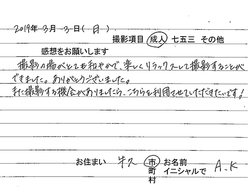 2019年3月3日(日)
撮影項目 成人 七五三 その他
感想をお願いします
撮影の場がとても和やかで、楽しくリラックスして撮影することが
できました。ありがとうございました。
また撮影する機会がありましたら、こちらを利用させていただきたいです!
お住まい 牛久 市 町 村 お名前 イニシャルで A.K